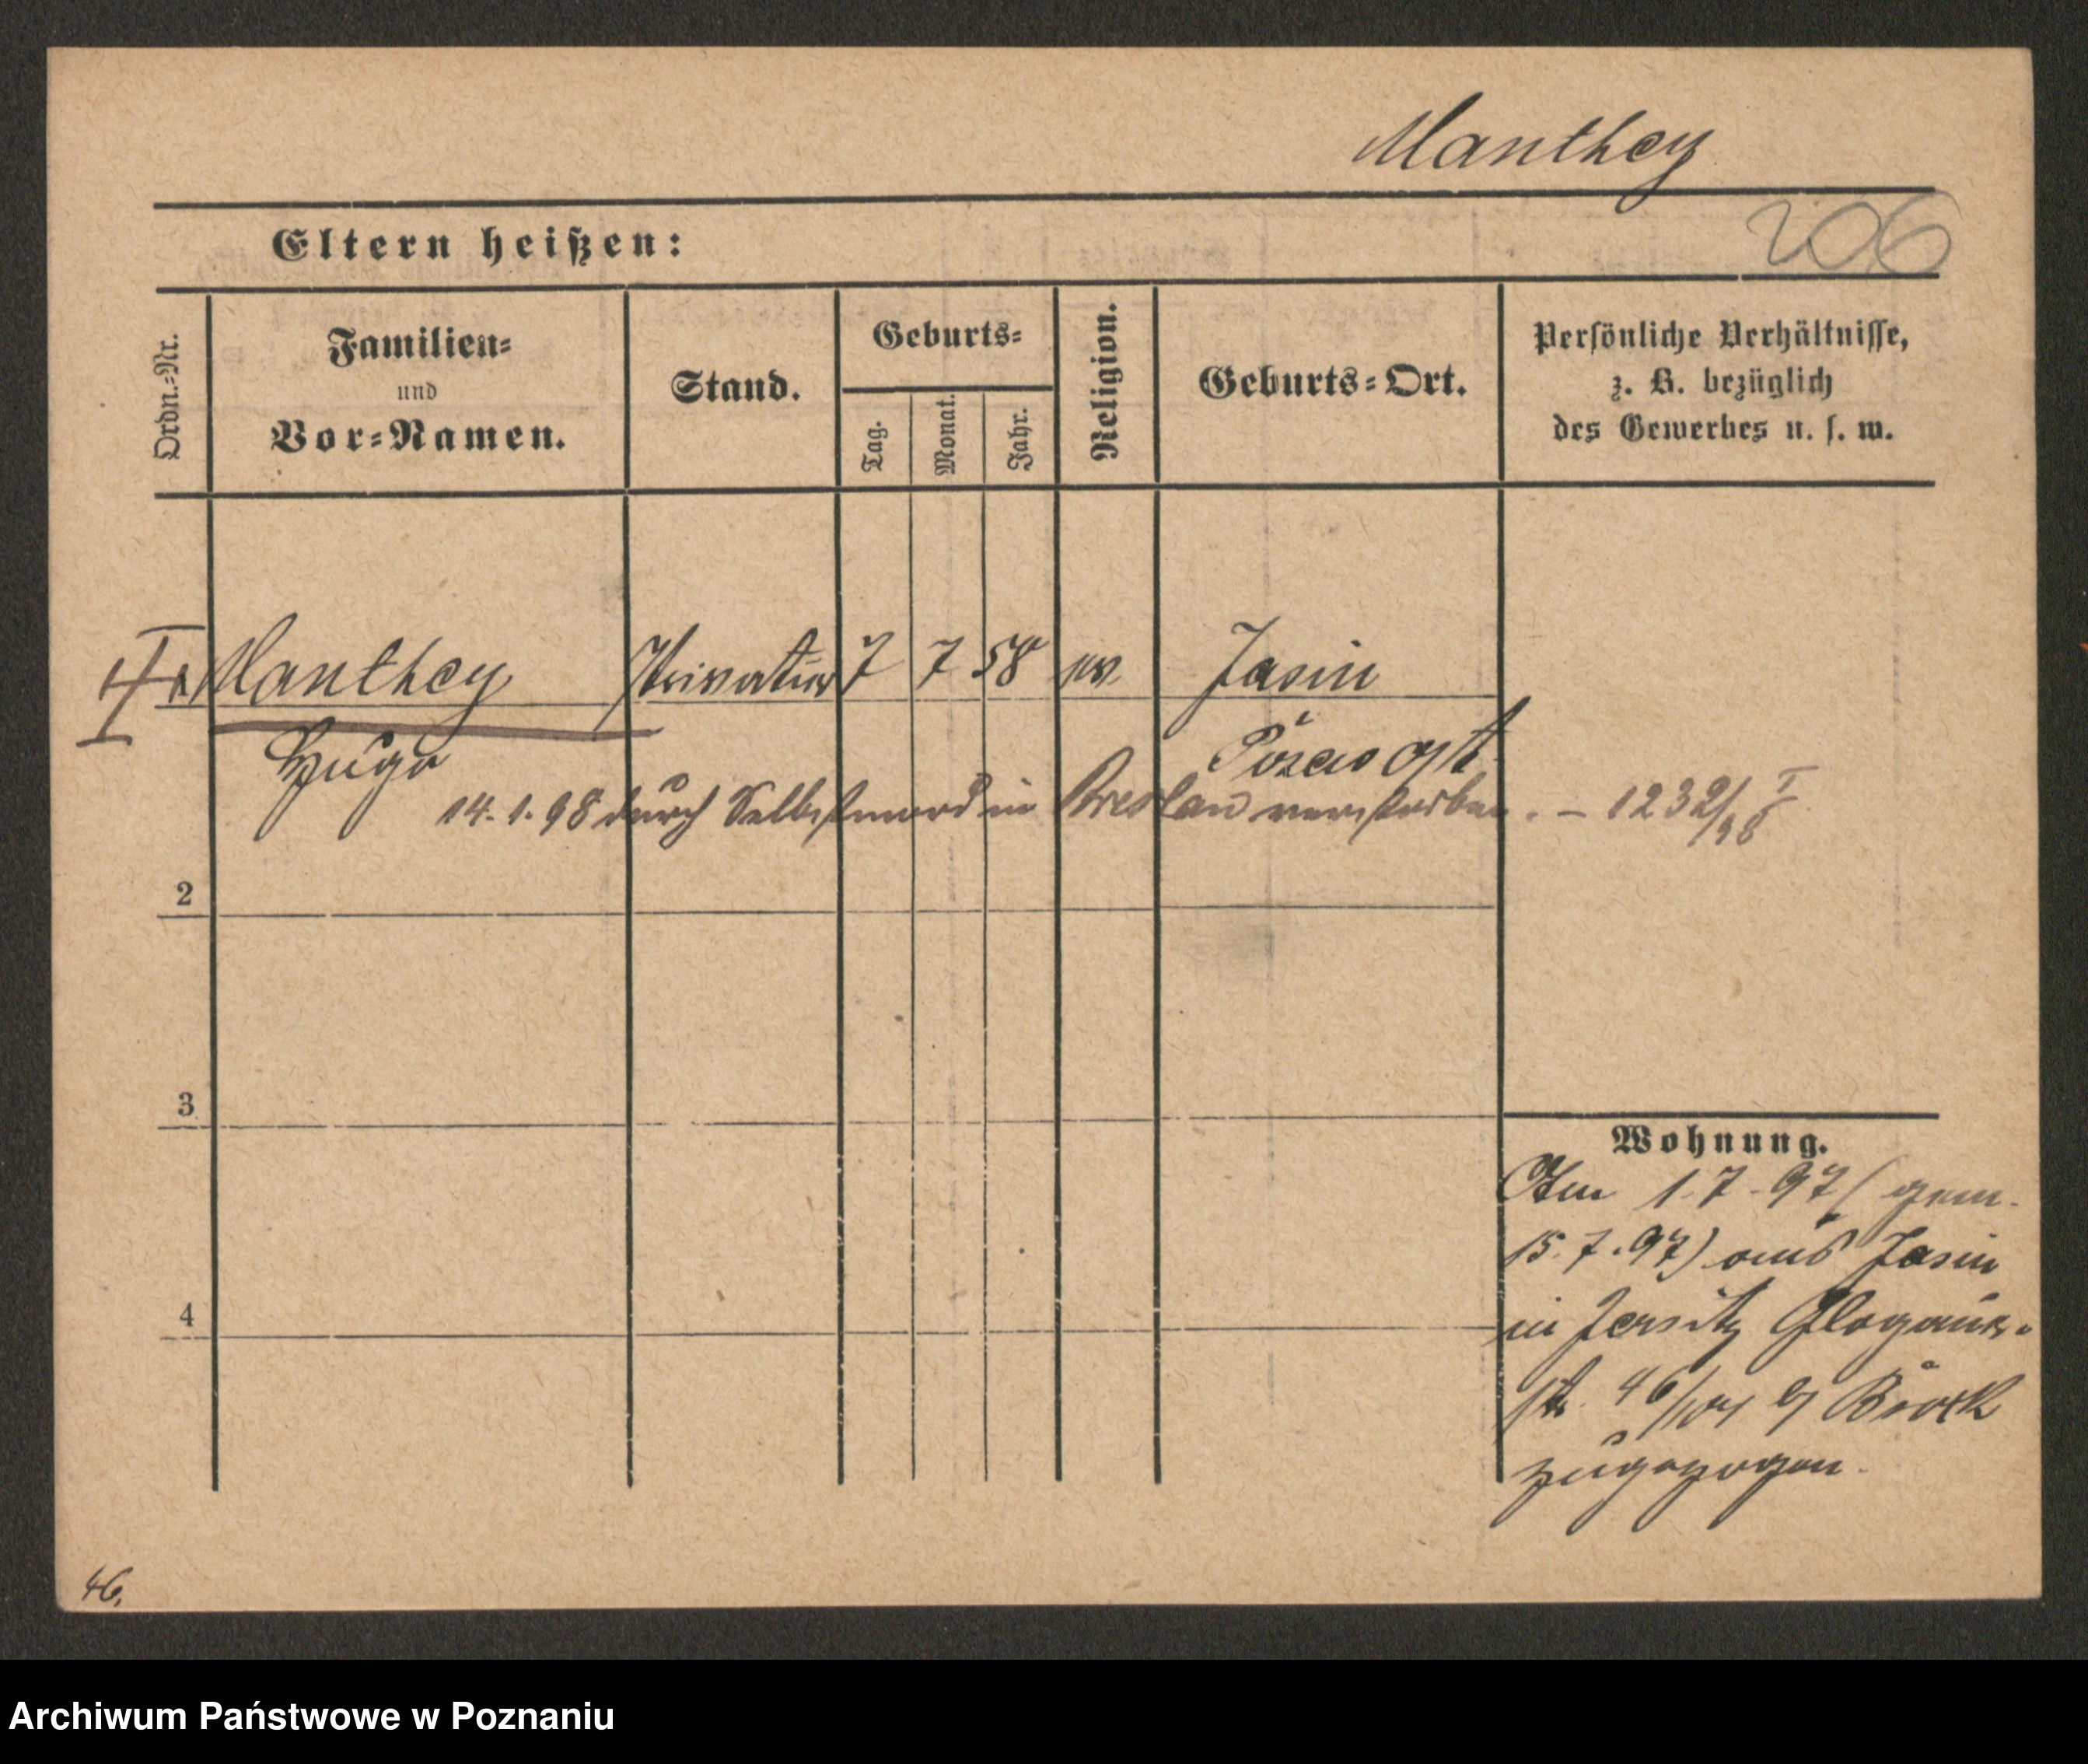 Manthey
206
Eltern heißen:
Ordn.-Nr.
Familien-
und
Vor-Namen.
Stand.
Geburts-
Tag.
Monat.
Jahr.
Religion.
Geburts-Ort.
Persönliche Verhältnisse,
z. B. bezüglich
des Gewerbes u. s. w.
Manthey Privatier 7 7 58 ev. Jasin
Hugo Posen Ost
14.1.98 durch Selbstmord in Breslau verstorben. – 1232/98 I
2
3
Wohnung.
Am 1.7.97 (gem.
15.7.97) aus Jasin
4
in Jersitz Glogauer-
str. 46/ Brock
zugezogen.
46.
Archiwum Państwowe w Poznaniu